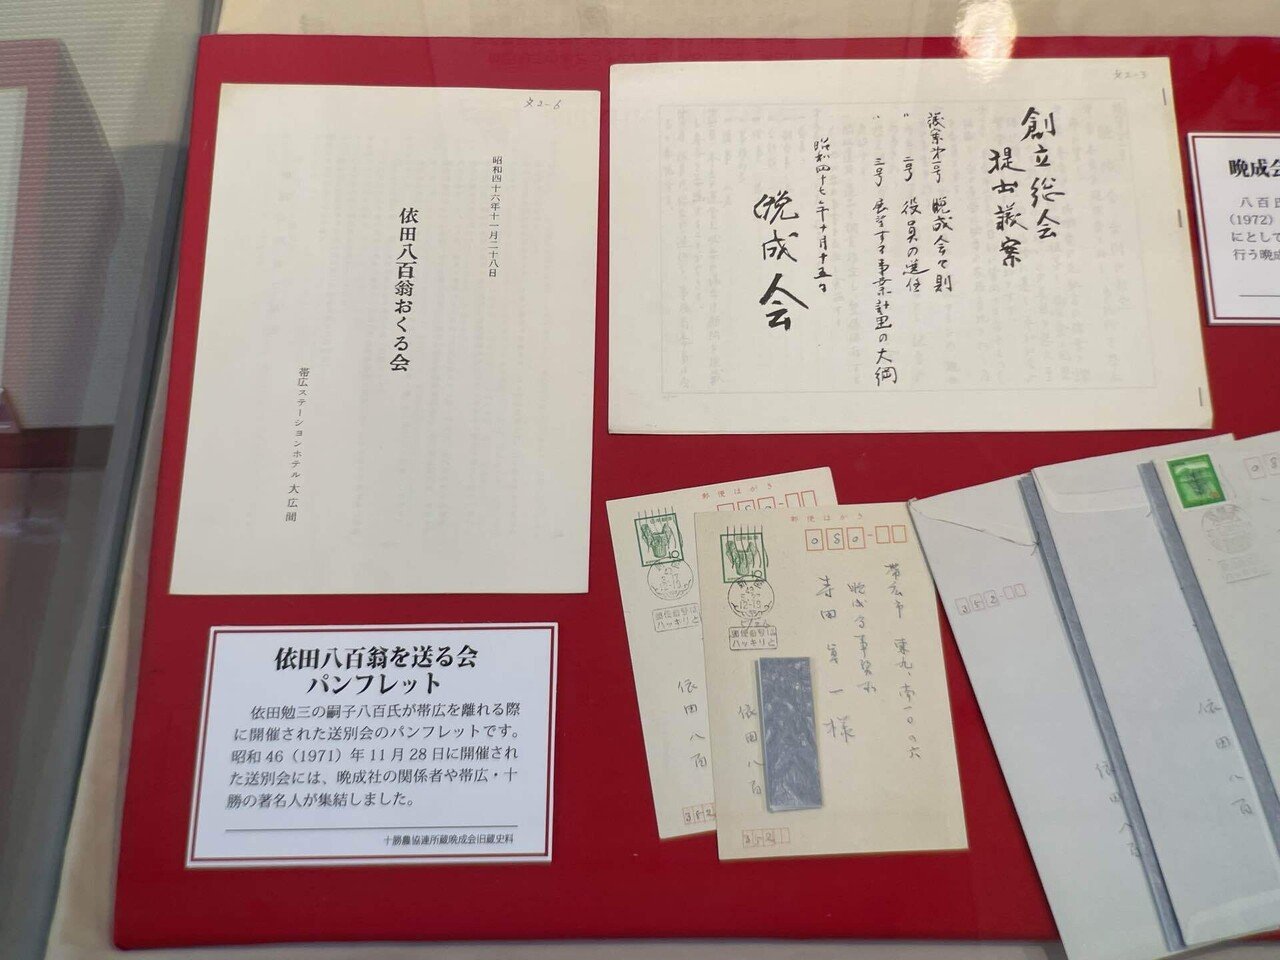 文2-6
昭和四十六年十一月二十八日
依田八百翁おくる会
帯広ステーションホテル大広間
文2-3
創立総会
提出議案
議案第一号 晩成会々則
〃 二号 役員の選任
〃 三号 展望する事業計画の大綱
昭和四十七年十月十五日
晩成会
晩成会
八百氏
(1972)
にとして
行う晩成
依田八百翁を送る会
パンフレット
依田勉三の嗣子八百氏が帯広を離れる際
に開催された送別会のパンフレットです。
昭和46(1971)年11月28日に開催され
た送別会には、晩成社の関係者や帯広・十
勝の著名人が集結しました。
十勝農協連所蔵晩成会旧蔵史料
郵便はがき
依田八百
352
郵便はがき
080
10
郵便番号は
ハッキリと
帯広市東九、南一〇の六
晩成会事務所
様
依田八百
352
352
依田八百
依田八百